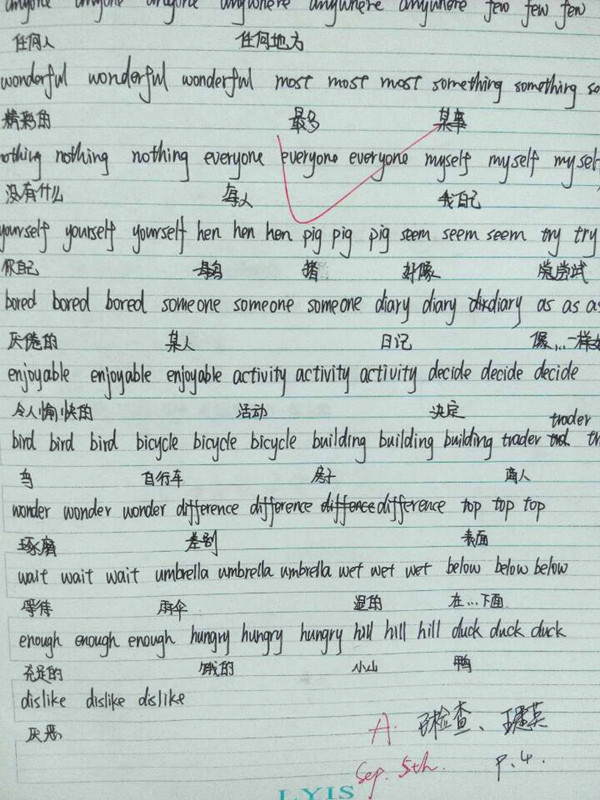 anyone anyone anyone anywhere anywhere anywhere few few few
任何人 任何地方
wonderful wonderful wonderful most most most something something so
精彩的 最多 某事
othing nothing nothing everyone everyone everyone myself myself myself
没有什么 每人 我自己
yourself yourself yourself hen hen hen pig pig pig seem seem seem try try
你自己 母鸡 猪 好像 尝试
bored bored bored someone someone someone diary diary diary as as as
厌倦的 某人 日记 像...一样
enjoyable enjoyable enjoyable activity activity activity decide decide decide
令人愉快的 活动 决定
trader
bird bird bird bicycle bicycle bicycle building building building trader
鸟 自行车 房子 商人
wonder wonder wonder difference difference difference difference top top top
琢磨 差别 表面
wait wait wait umbrella umbrella umbrella wet wet wet below below below
等待 雨伞 湿的 在...下面
enough enough enough hungry hungry hungry hill hill hill duck duck duck
充足的 饿的 小山 鸭
dislike dislike dislike
厌恶
A. 已检查、
Sep. 5th. P.4.
LYIS